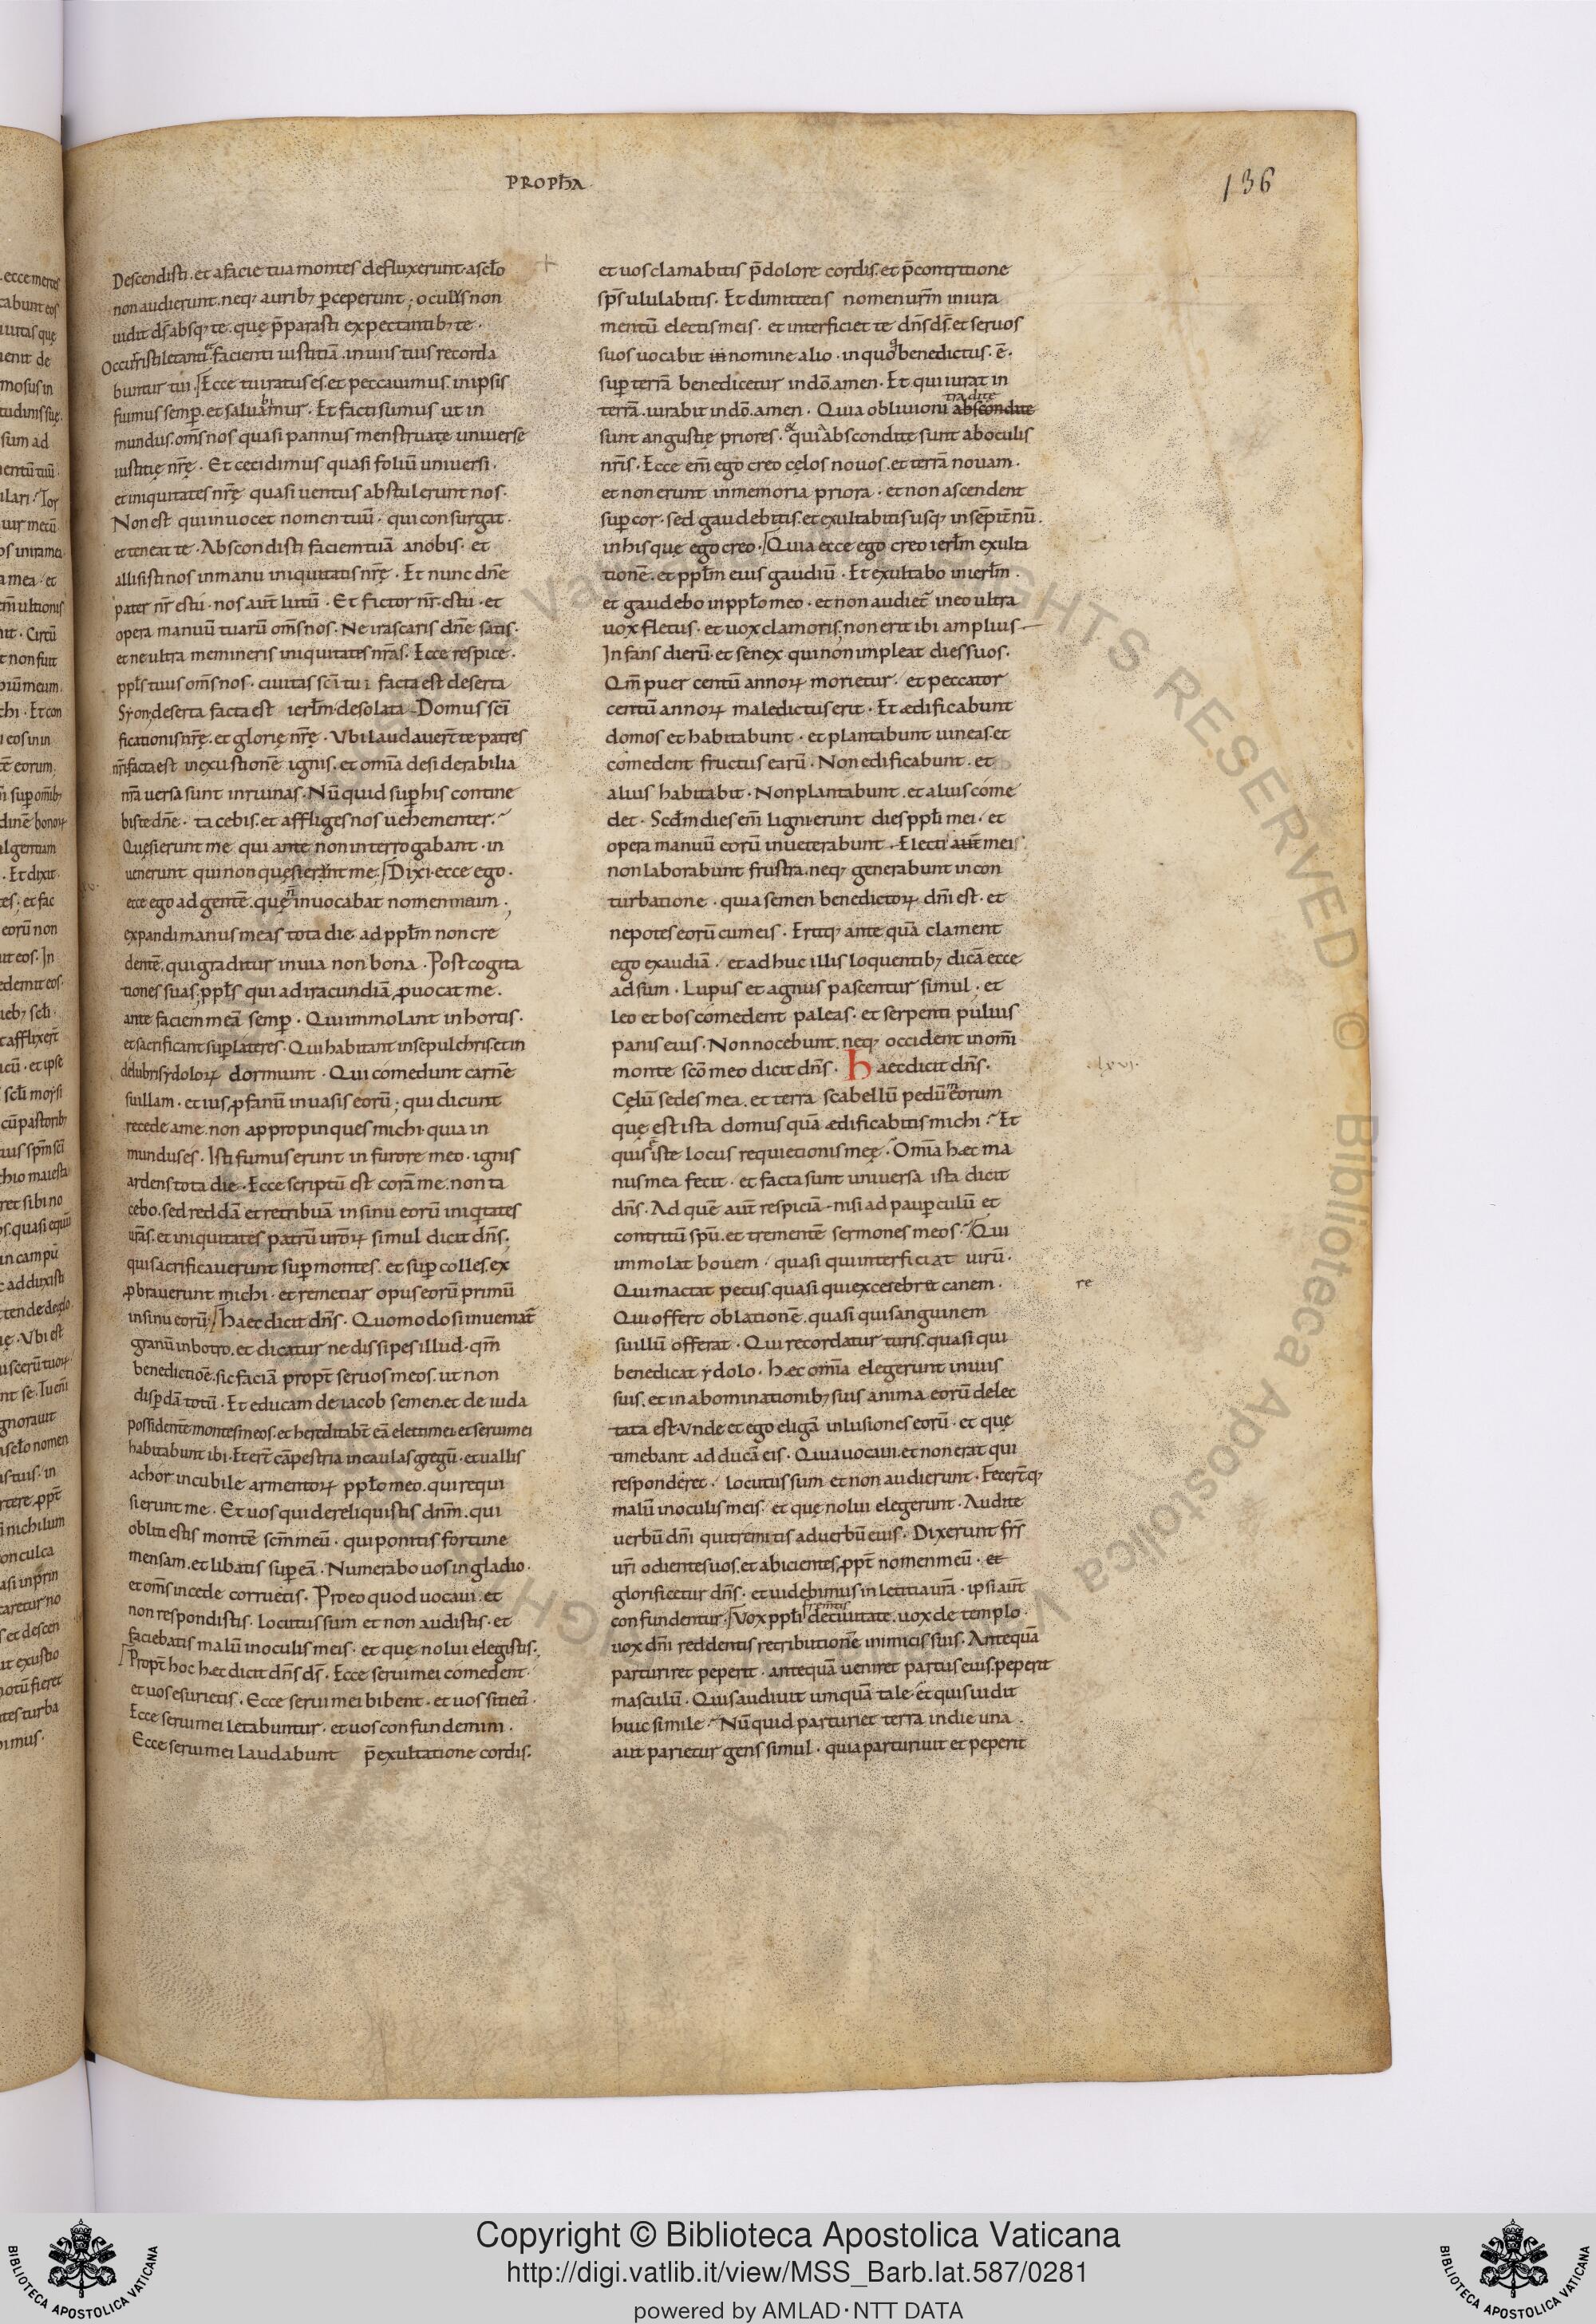 PROPHA
136
Descendisti. et afacie tua montes defluxerunt. asclo
non audierunt. neq; aurib; pceperunt; oculus non
uidit ds absq; te. quę pparasti expectantib; te.
Occurristi letanti facienti iustitiā. inuiis tuis recorda
buntur tui. Ecce tu iratus es. et peccauimus. inipsis
fuimus semp. et saluabimur. Et facti sumus ut in
mundus. oms nos quasi pannus menstruatę uniuerse
iustitię nrę. Et cecidimus quasi foliū uniuersi.
et iniquitates nrę quasi uentus abstulerunt nos.
Non est qui inuocet nomen tuū. qui consurgat.
et teneat te. Abscondisti faciem tuā anobis. et
allisisti nos inmanu iniquitatis nrę. Et nunc dne
pater nr es tu. nos aut lutū. Et fictor nr es tu. et
opera manuū tuarū oms nos. Ne irascaris dne satis.
et ne ultra memineris iniquitates nras. Ecce respice.
ppls tuus oms nos. ciuitas sci tui facta est deserta
Syon deserta facta est ierlm desolata. Domus sci
ficationis nrę. et glorię nrę. Vbi laudauert te patres
nri facta est inexustionē ignis. et omia desiderabilia
nra uersa sunt inruinas. Nūquid sup his contine
bis te dne. tacebis. et affliges nos uehementer.
Quęsierunt me qui ante non interrogabant. in
uenerunt qui non quesierunt me. Dixi. ecce ego.
ecce ego ad gentē. quę n inuocabat nomen meum;
expandi manus meas tota die. ad pplm non cre
dentē. qui graditur inuia non bona. Post cogita
tiones suas. ppls qui adiracundiā puocat me.
ante faciem meā semp. Qui immolant inhortis.
et sacrificant sup lateres. Qui habitant insepulchris. et in
delubris ydolorꝝ dormiunt. Qui comedunt carnē
suillam. et ius pfanū inuasis eorū; qui dicunt
recede ame. non appropinques michi. quia in
mundus es. Isti fumus erunt in furore meo. ignis
ardens tota die. Ecce scriptū est corā me. non ta
cebo. sed reddā et retribuā insinu eorū iniqitates
uras. et iniquitates patrū urorꝝ simul dicit dns.
qui sacrificauerunt sup montes. et sup colles. ex
pbrauerunt michi. et remetiar opus eorū primū
insinu eorū. haec dicit dns. Quomodo si inueniat
granū inbotro. et dicatur ne dissipes illud. qm
benedictioē. sic faciā propt seruos meos. ut non
dispdā totū. Et educam de iacob semen. et de iuda
possidentē montes meos. et hereditabt eā electi mei. et serui mei
habitabunt ibi. Et ert cāpestria incaulas gregū. et uallis
achor incubile armentorꝝ pplo meo. qui requi
sierunt me. Et uos qui dereliquistis dnm. qui
obliti estis montē scm meū. qui ponitis fortune
mensam. et libatis sup eā. Numerabo uos ingladio.
et oms incede corruetis. Pro eo quod uocaui. et
non respondistis. Locutus sum et non audistis. et
faciebatis malū inoculis meis. et quę nolui elegistis.
Propt hoc hęc dicit dns ds. Ecce serui mei comedent.
et uos esurietis. Ecce serui mei bibent. et uos sitietis.
Ecce serui mei letabuntur. et uos confundemini.
Ecce serui mei laudabunt pexultatione cordis.
et uos clamabitis pdolore cordis. et pcontritione
sps ululabitis. Et dimittetis nomen urm iniura
mentū electis meis. et interficiet te dns ds. et seruos
suos uocabit in nomine alio. inquo q benedictus. ē.
sup terrā benedicetur indō. amen. Et qui iurat in
tradite
terrā. iurabit indō. amen. Quia obliuioni abscondite
sunt angustię priores. et quia abscondite sunt aboculis
nris. Ecce em ego creo cęlos nouos. et terrā nouam.
et non erunt inmemoria priora. et non ascendent
sup cor. sed gaudebitis. et exultabitis usq; insēpitnū.
inhis quę ego creo. Quia ecce ego creo ierlm exulta
tionē. et pplm eius gaudiū. Et exultabo inierlm.
et gaudebo inpplo meo. et non audiet ineo ultra
uox fletus. et uox clamoris. non erit ibi amplius
Infans dierū. et senex qui non impleat dies suos.
Qm puer centū annorꝝ morietur. et peccator
centū annorꝝ maledictus erit. Et ædificabunt
domos et habitabunt. et plantabunt uineas. et
comedent fructus earū. Non edificabunt. et
alius habitabit. Non plantabunt. et alius come
det. Scdm dies em ligni erunt dies ppli mei. et
opera manuū eorū inueterabunt. Electi aut mei
non laborabunt frustra. neq; generabunt incon
turbatione. quia semen benedictorꝝ dni est. et
nepotes eorū cum eis. Eritq; ante quā clament
ego exaudiā. et adhuc illis loquentib; dicā ecce
adsum. Lupus et agnus pascentur simul. et
leo et bos comedent paleas. et serpenti puluis
panis eius. Non nocebunt. neq; occident inomi
monte scō meo dicit dns. haec dicit dns.
lxvi.
Cęlū sedes mea. et terra scabellū pedū m eorum
quę est ista domus quā ædificabitis michi. Et
quis ē iste locus requietionis meę. Omia hæc ma
nus mea fecit. et facta sunt uniuersa ista dicit
dns. Ad quē aut respiciā. nisi ad paupculū et
contritū spu. et trementē sermones meos. Qui
immolat bouem. quasi qui interficiat uirū.
Qui mactat pecus. quasi qui excerebret canem.
re
Qui offert oblationē. quasi qui sanguinem
suillū offerat. Qui recordatur turis. quasi qui
benedicat ydolo. hæc omia elegerunt inuiis
suis. et in abominationib; suis anima eorū delec
tata est. Vnde et ego eligā inlusiones eorū. et quę
timebant adducā eis. Quia uocaui. et non erat qui
responderet. Locutus sum et non audierunt. Fecertq;
malū inoculis meis. et quę nolui elegerunt. Audite
uerbū dni qui tremitis aduerbū eius. Dixerunt frs
uri odientes uos. et abicientes ppt nomen meū. et
glorificetur dns. et uidebimus in letitia ura. ipsi aut
confundentur. Vox ppli deciuitate. uox de templo.
uox dni reddentis retributionē inimicis suis. Antequā
parturiret peperit. antequā ueniret partus eius. peperit
masculū. Quis audiuit umquā tale. et quis uidit
huic simile. Nūquid parturiet terra indie una.
aut parietur gens simul. quia parturiuit et peperit
Copyright © Biblioteca Apostolica Vaticana
http://digi.vatlib.it/view/MSS_Barb.lat.587/0281
powered by AMLAD·NTT DATA
BIBLIOTECA APOSTOLICA VATICANA
BIBLIOTECA APOSTOLICA VATICANA